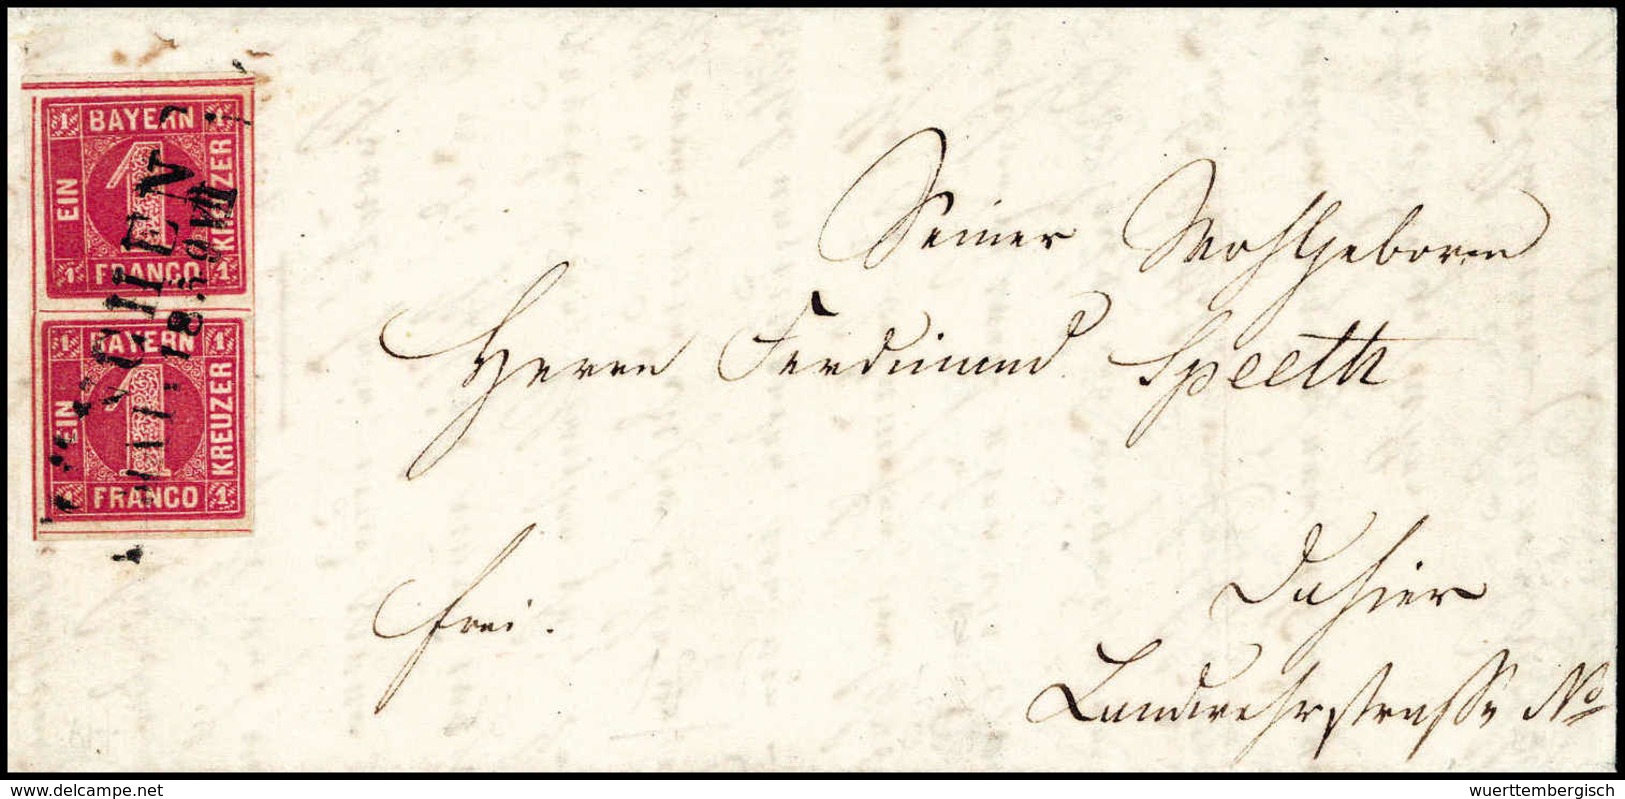 1 BAYERN 1
EIN 1 KREUZER
1 FRANCO 1
1 BAYERN 1
EIN 1 KREUZER
1 FRANCO 1
Seiner Wohlgeboren
Herrn Ferdinand Speeth
frei.
Dahier
Landwehrstrasse No
delcampe.net
wuerttembergisch